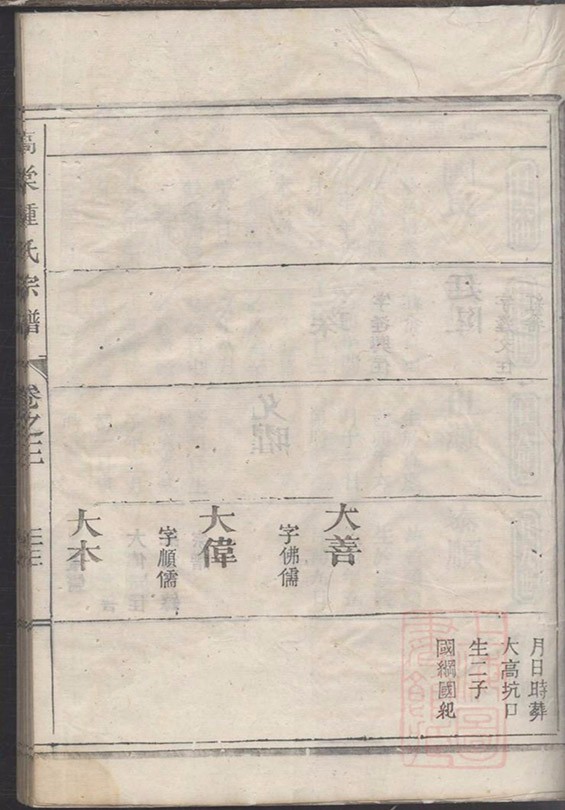 月日時葬
大高坑口
生二子
國綱國紀
大善
字佛儒
大偉
字順儒
大本
高
氏宗譜
卷之三